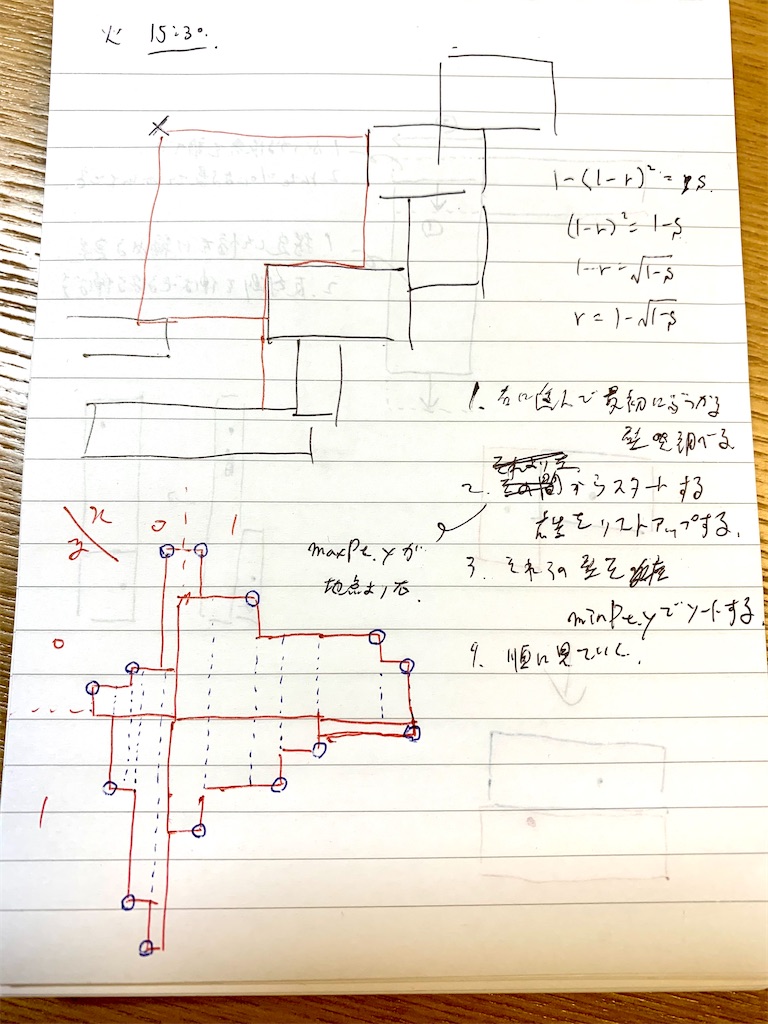 火 15:30.
1-(1-r)² = s.
(1-r)² = 1-s
1-r = √1-s
r = 1-√1-s
1. 右に進んで最初にぶつかる
壁を調べる
2. からスタートする
壁をリストアップする.
maxPt.yが
地点より右.
3. それらの壁を
minPt.yでソートする
4. 順に見ていく.
x
z
0 1
0
1